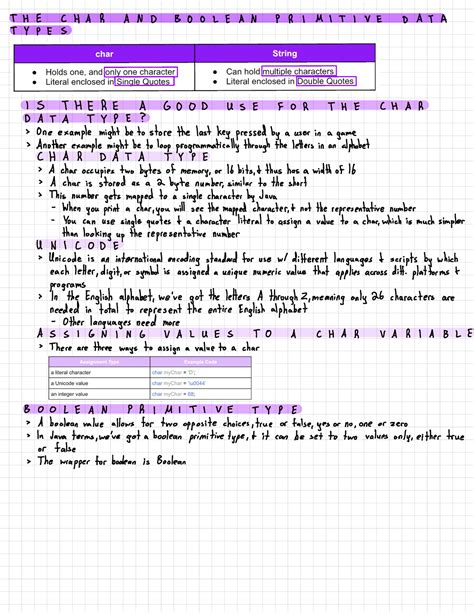 THE CHAR AND BOOLEAN PRIMITIVE DATA
TYPES
char String
• Holds one, and only one character • Can hold multiple characters
• Literal enclosed in Single Quotes • Literal enclosed in Double Quotes
IS THERE A GOOD USE FOR THE CHAR
DATA TYPE?
> One example might be to store the last key pressed by a user in a game
> Another example might be to loop programmatically through the letters in an alphabet
CHAR DATA TYPE
> A char occupies two bytes of memory, or 16 bits, & thus has a width of 16
> A char is stored as a 2 byte number, similar to the short
> This number gets mapped to a single character by Java
- When you print a char, you will see the mapped character, & not the representative number
- You can use single quotes & a character literal to assign a value to a char, which is much simpler
than looking up the representative number
UNICODE
> Unicode is an international encoding standard for use w/ different languages & scripts by which
each letter, digit, or symbol is assigned a unique numeric value that applies across diff. platforms &
programs
> In the English alphabet, we've got the letters A through Z, meaning only 26 characters are
needed in total to represent the entire English alphabet
- Other languages need more
ASSIGNING VALUES TO A CHAR VARIABLE
> There are three ways to assign a value to a char
Assignment Type Example Code
a literal character char myChar = 'D';
a Unicode value char myChar = '\u0044'
an integer value char myChar = 68;
BOOLEAN PRIMITIVE TYPE
> A boolean value allows for two opposite choices, true or false, yes or no, one or zero
> In Java terms, we've got a boolean primitive type, & it can be set to two values only, either true
or false
> The wrapper for boolean is Boolean